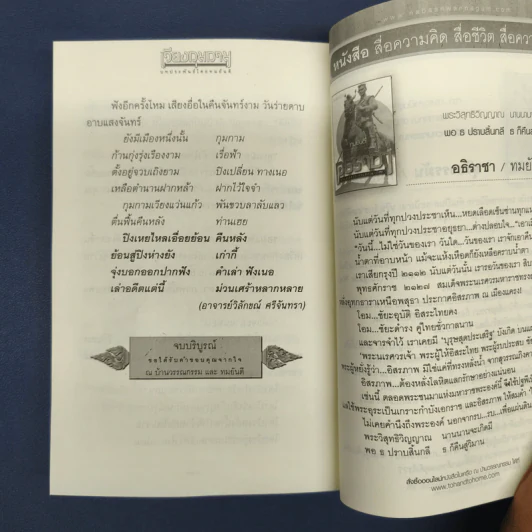 เวียงกุมกาม
บทประพันธ์โดยทมยันตี
ฟังอีกครั้งไหม เสียงยื่อในคืนจันทร์งาม วันร่ายดาบ
อาบแสงจันทร์
ยังมีเมืองหนึ่งนั้น กุมกาม
ก้านกุ่งรุ่งเรืองงาม เรื่อฟ้า
ตั้งอยู่จวบเถิงยาม ปิงเปลี่ยน ทางเนอ
เหลือตำนานฝากหล้า ฝากไว้ใจจำ
กุมกามเวียงแว่นแก้ว พันขวบลาลับแลว
ตื่นฟื้นคืนหลัง ท่านเฮย
ปิงเหยไหลเอื่อยย้อน คืนหลัง
ย้อนสู่ปิงห่างยัง เก่ากี้
จุ่งบอกออกปากฟัง คำเล่า ฟังเนอ
เล่าอดีตแต่นี้ ม่วนเศร้าหลากหลาย
(อาจารย์วิลักษณ์ ศรีจันทรา)
จบบริบูรณ์
ขอได้รับคำขอบคุณจากใจ
ณ บ้านวรรณกรรม และ ทมยันตี
หนังสือ สื่อความคิด สื่อชีวิต สื่อความ
พระวิสุทธิวิญญาณ นานนาน
พอ ธ ปราบสิ้นกลี ธ ก็คืน
อธิราชา / ทมยัน
นับแต่วันที่ทุกปวงประชาเห็น...หยดเลือดเซ่นชานทุก
นับแต่วันที่ทุกปวงประชาอยุธยา...ต่างปลอบใจ..."เอา
"วันนี้...ไม่ใช่วันของเรา วันใด...วันของเรา เราจักเอาคืน
น้ำตาที่อาบหน้า แม้จะแห้งเหือดก็ยังเหลือคราบน้ำตา
เราเสียกรุงปี ๒๑๑๒ นับแต่วันนั้น เรารอวันของเรา สิบ
พุทธศักราช ๒๑๒๗ สมเด็จพระนเรศวรมหาราชทรง
หลั่งอุทกธาราเหนือพสุธา ประกาศอิสรภาพ ณ เมืองแครง!
โอม...ชัยะอุบัติ อิสระไทยคง
โอม...ชัยะดำรง คู่ไทยชั่วกาลนาน
และจารจำไว้ เราเคยมี "บุรุษสุดประเสริฐ" บังเกิด บนแผ่
"พระนเรศวรเจ้า พระผู้ให้อิสระไทย
พระผู้หยั่งรู้ว่า...อิสรภาพ มิใช่แค่ที่ทรงหลั่งน้ำ จากสุวรรณภิงคาร
อิสรภาพ...ต้องหลั่งโลหิตแลกรักษาอย่างแน่นอน
เช่นนี้ ตลอดพระชนมาแห่งมหาราชพระองค์นี้
แลใช้พระอุระเป็นเกราะกำบังเอกราช และอิสรภาพ ให้สมดั่ง
ไม่เคยคำนึงถึงพระองค์ นอกจากรบ...รบ...เพื่อแผ่นดิน
พระวิสุทธิวิญญาณ นานนานจะเกิดมี
พอ ธ ปราบสิ้นกลี ธ ก็คืนสู่วิมาน
www.tohandtohome.com